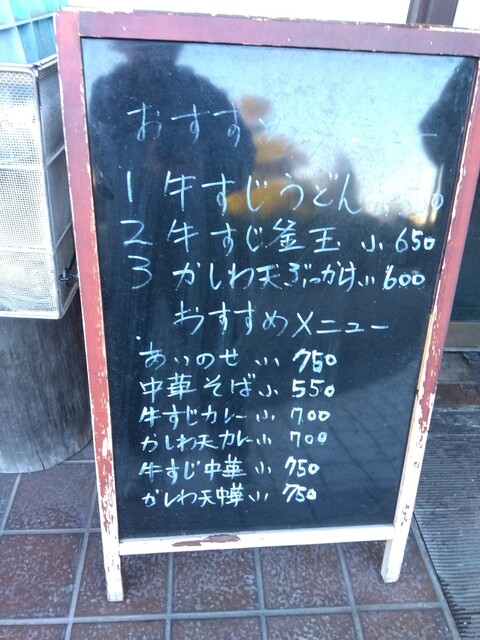 おすすめメニュー
1 牛すじうどん 小
2 牛すじ釜玉 小 650
3 かしわ天ぶっかけ 小 600
おすすめメニュー
あいのせ 小 750
中華そば 小 550
牛すじカレー 小 700
かしわ天カレー 小 700
牛すじ中華 小 750
かしわ天中華 小 750